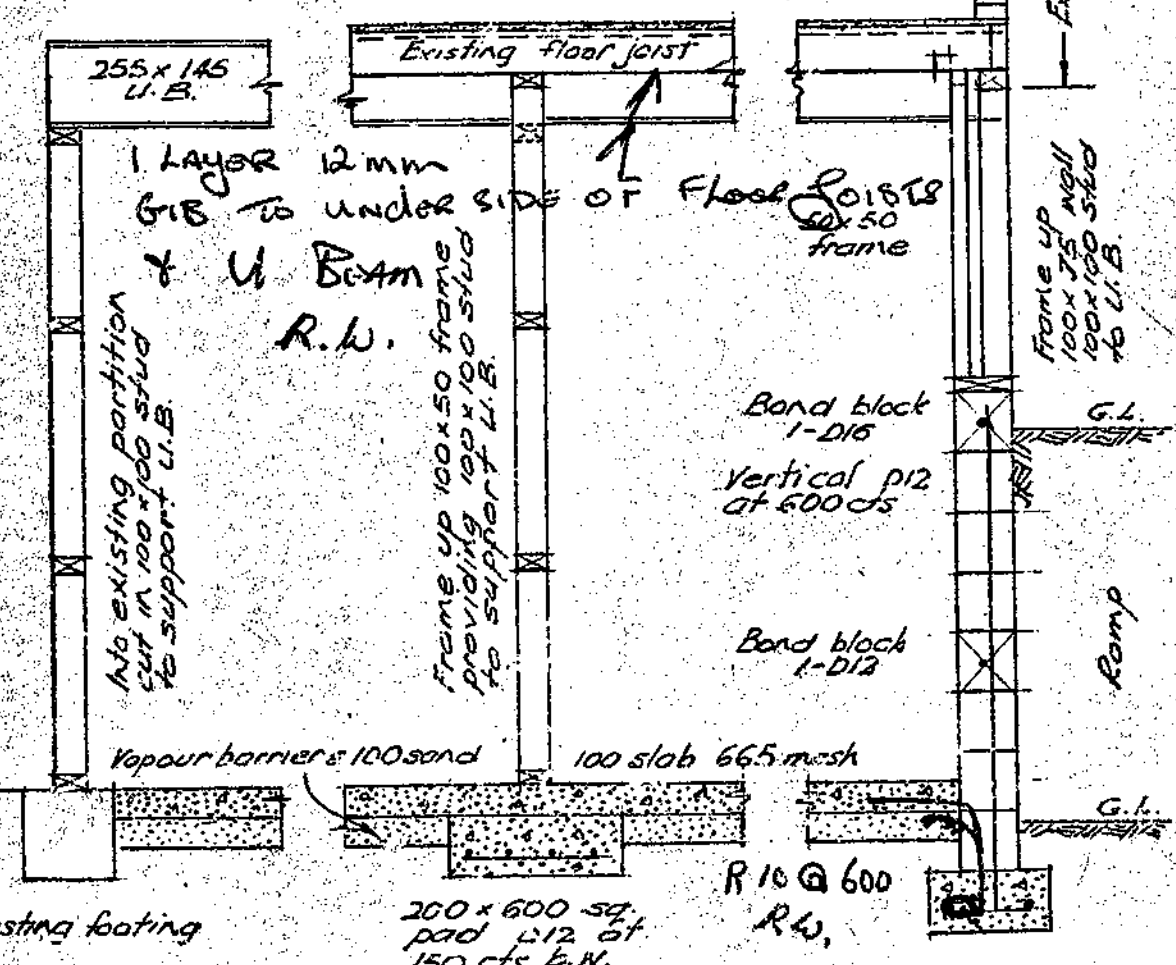 Existing floor joist
255 x 145
U.B.
1 LAYER 12mm
GIB TO UNDER SIDE OF FLOOR JOISTS
& U BEAM
R.W.
50x50
frame
Frame up
100 x 75 wall
100x100 stud
to U.B.
Into existing partition
cut in 100 x 100 stud
to support U.B.
Frame up 100x50 frame
providing 100x100 stud
to support U.B.
Bond block
1-D16
G.L.
Vertical D12
at 600 cts
Bond block
1-D12
Ramp
Vapour barrier & 100 sand
100 slab 665 mesh
G.L.
R 10 @ 600
R.W.
footing
200 x 600 sq.
pad D12 at
150 cts b.w.